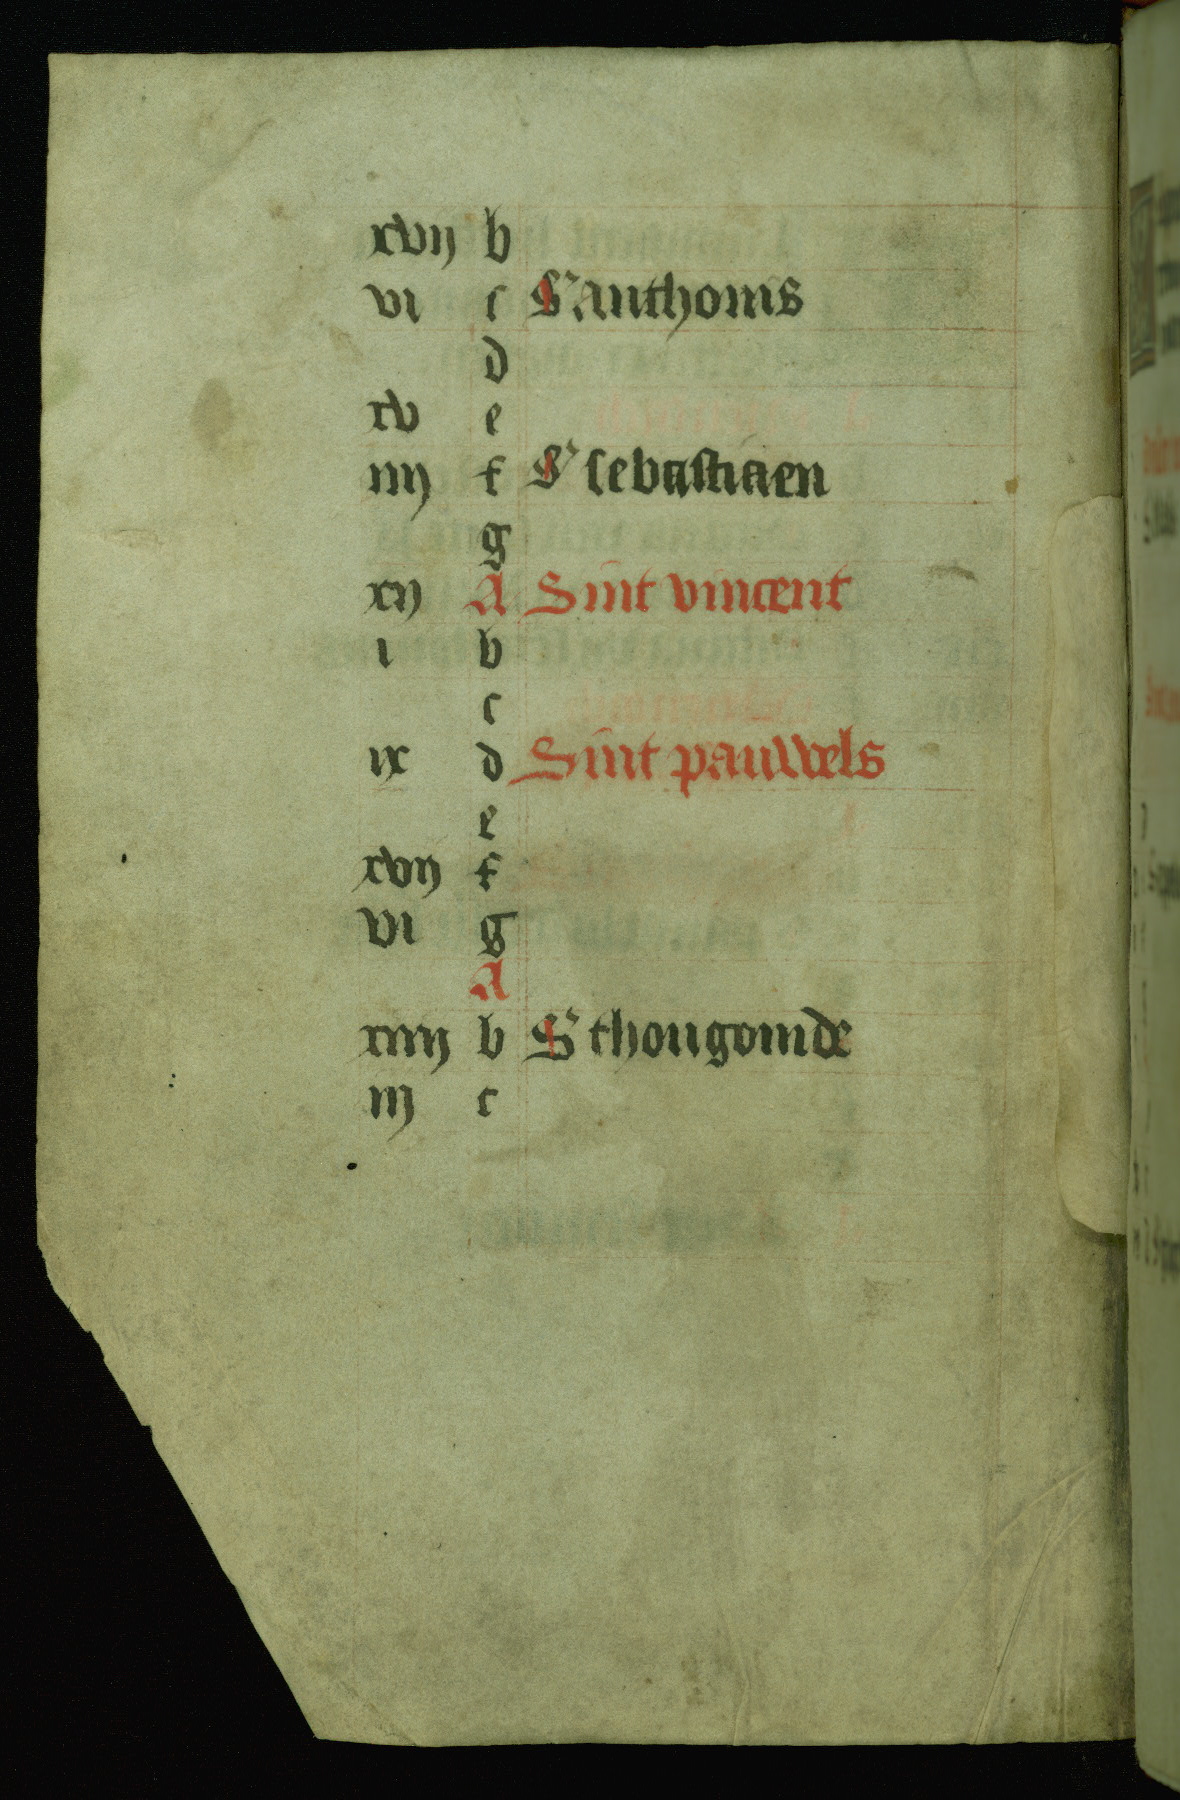 xvij b
vi c S' anthonis
d
xv e
iiij f S' sebastiaen
g
xij A Sint vincent
i b
c
ix d Sint pauwels
e
xvij f
vi g
A
xiiij b S' thongonde
iij c